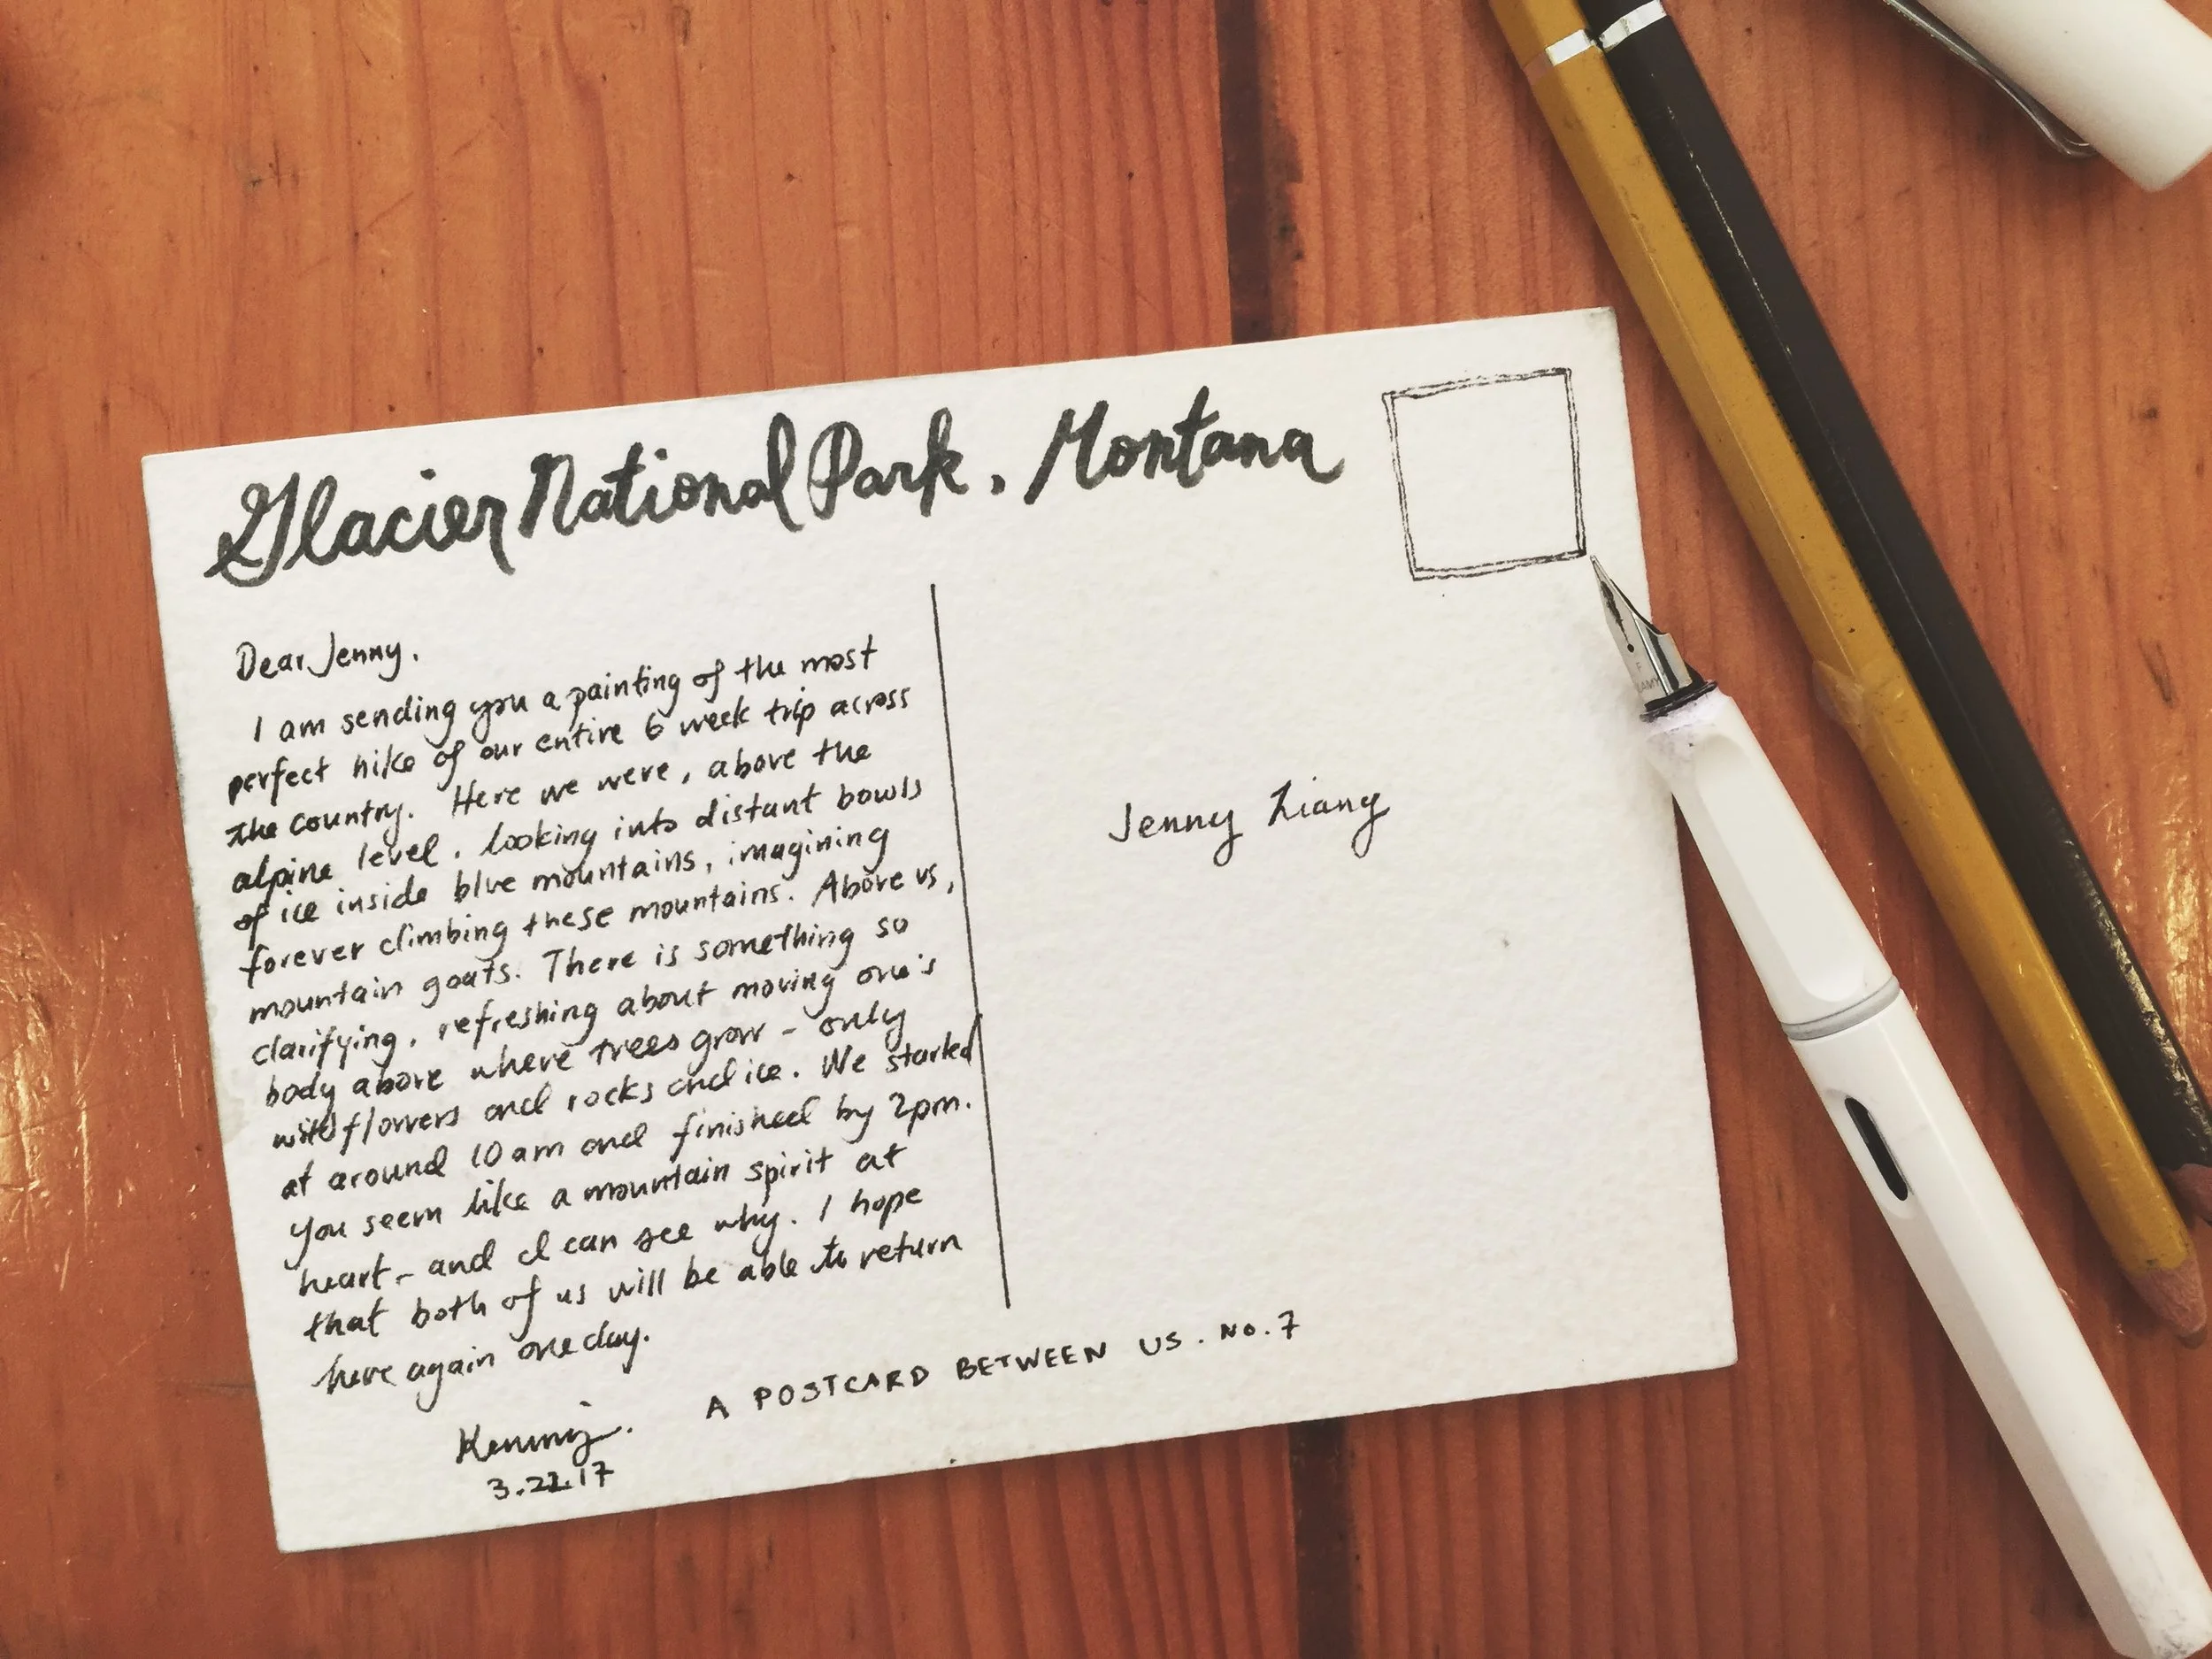 Glacier National Park, Montana
Dear Jenny,
I am sending you a painting of the most
perfect hike of our entire 6 week trip across
the country. Here we were, above the
alpine level, looking into distant bowls
of ice inside blue mountains, imagining
forever climbing these mountains. Above us,
mountain goats. There is something so
clarifying, refreshing about moving one's
body above where trees grow - only
wildflowers and rocks and ice. We started
at around 10 am and finished by 2pm.
You seem like a mountain spirit at
heart - and I can see why. I hope
that both of us will be able to return
here again one day.
3.22.17
Jenny Liang
A POSTCARD BETWEEN US. NO. 7
F
LAMY